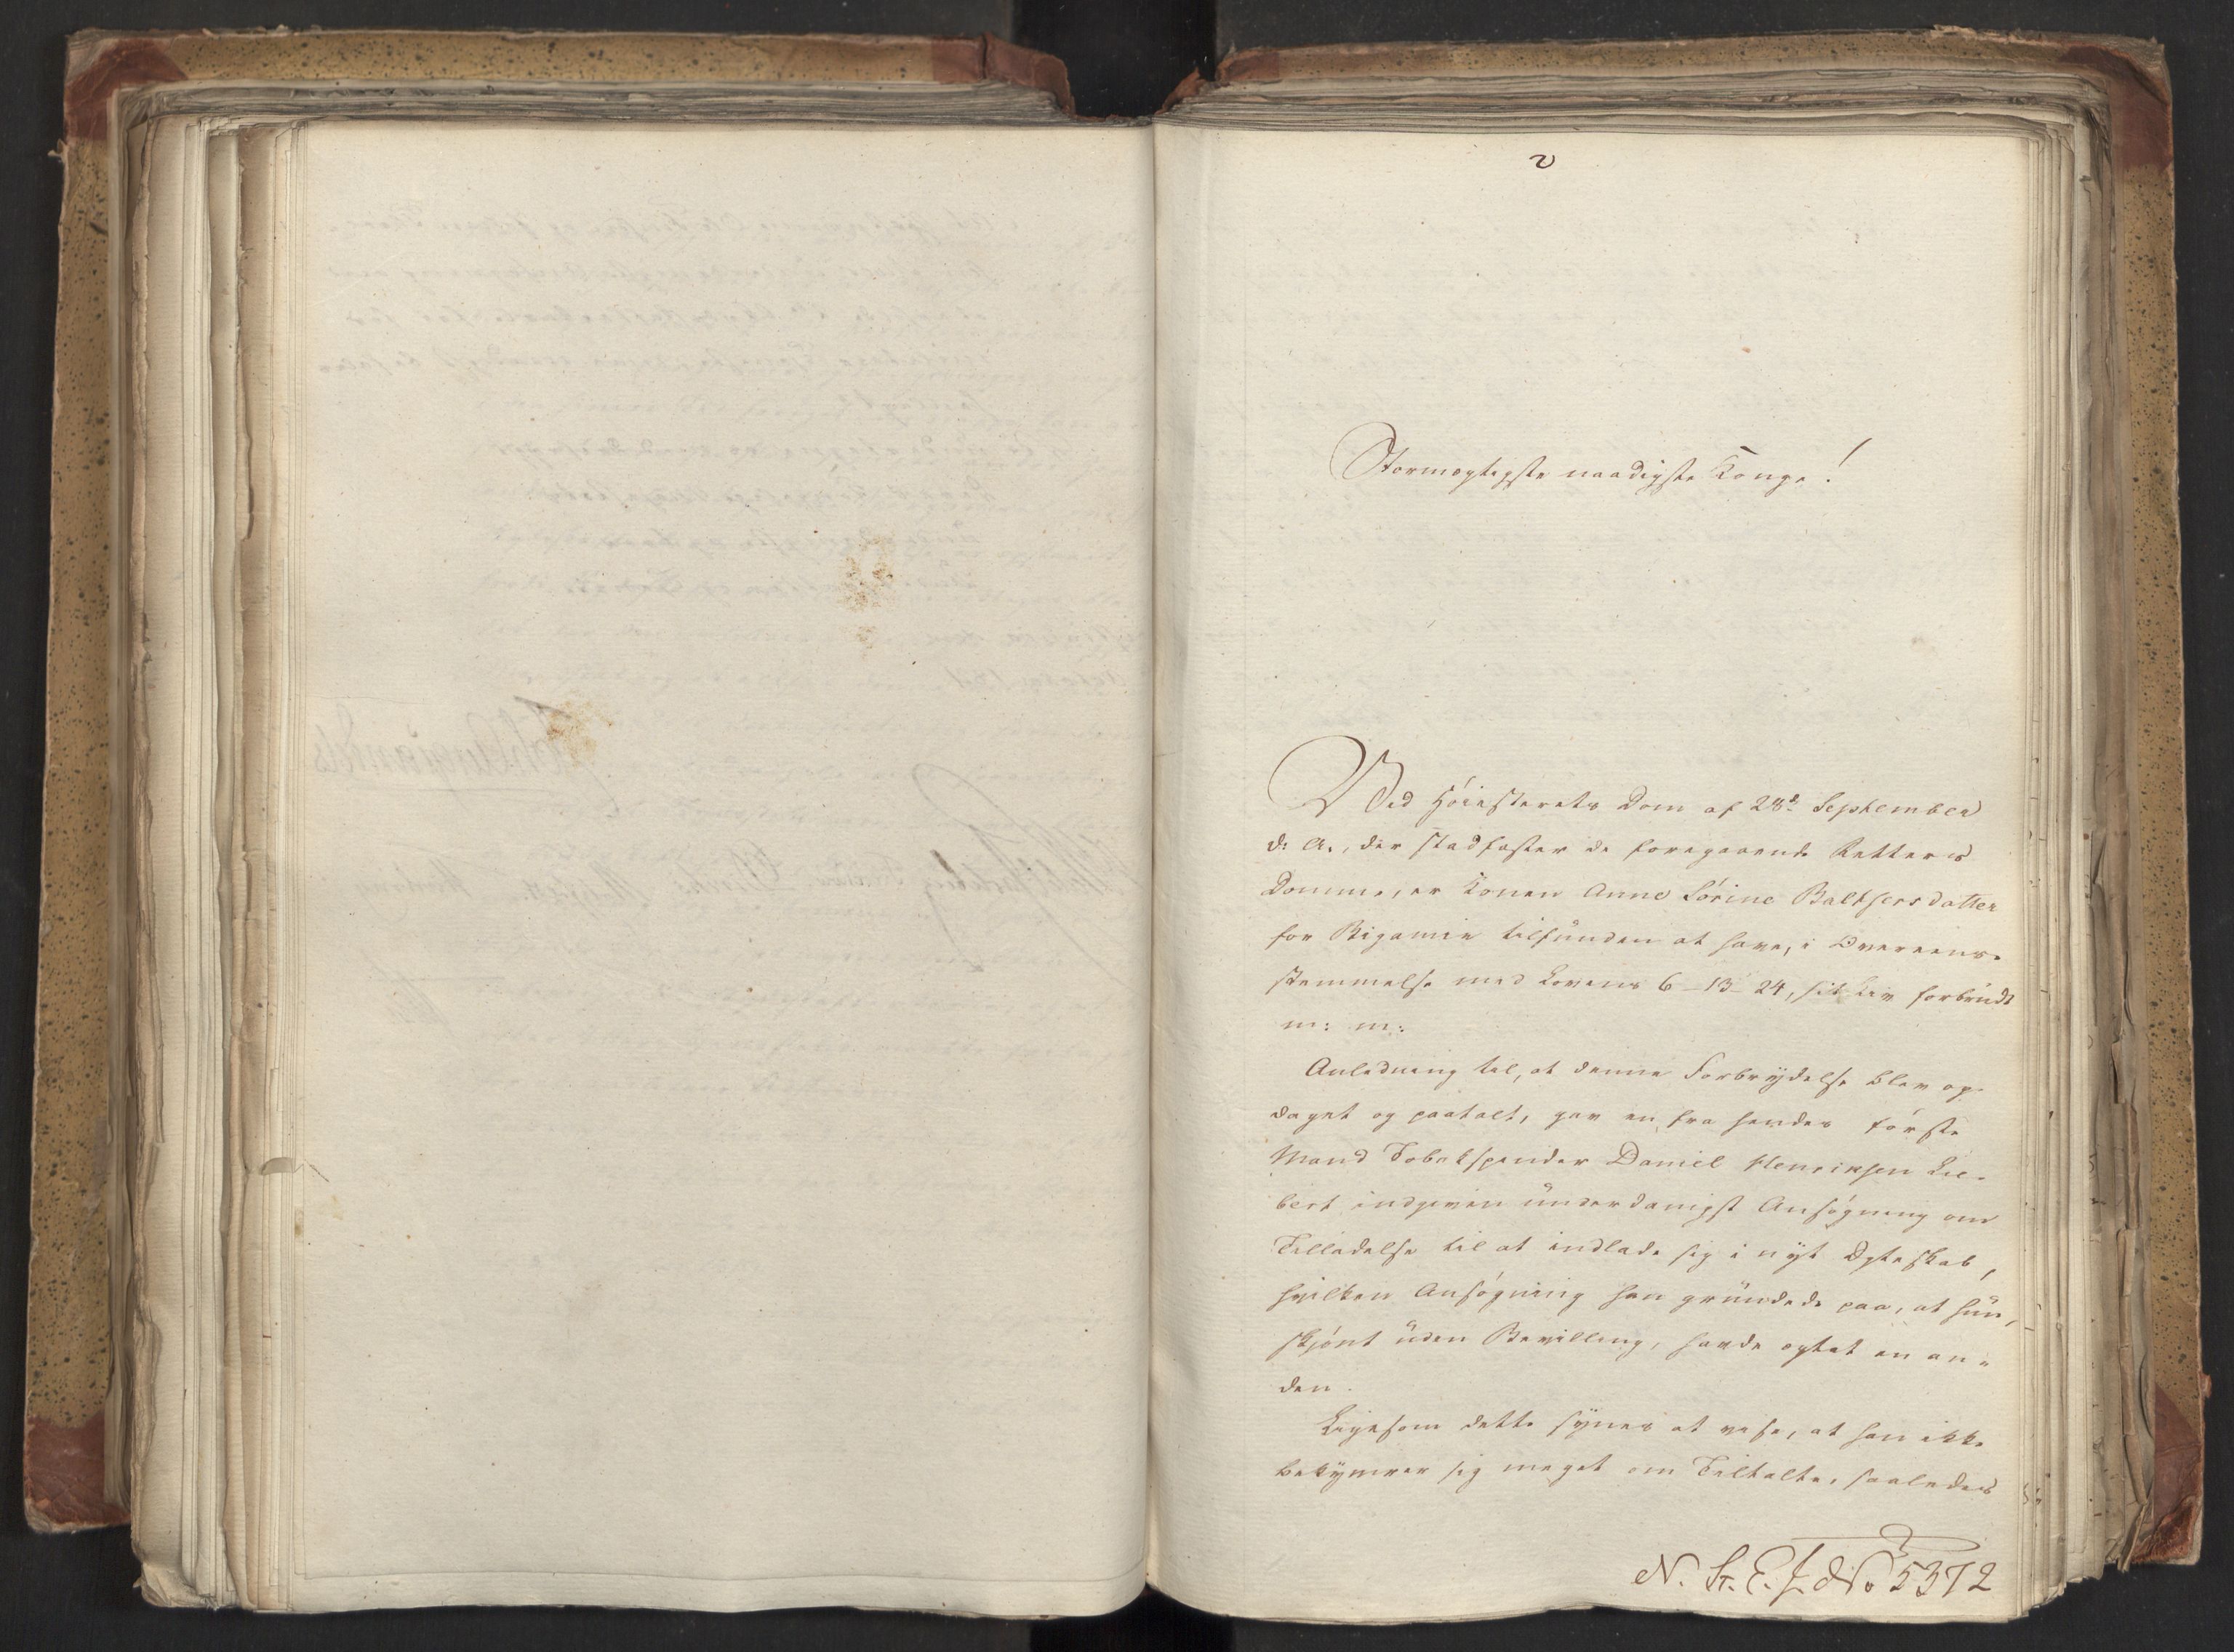 2
Stormægtigste naadigste Konge!
Ved Høiesterets Dom af 28de September
d: A., der stadfæster de foregaaende Retters
Domme, er Konen Anne Sørine Balthersdatter
for Bigamie tilfunden at have, i Overeens-
stemmelse med Lovens 6-13-24, sit Liv forbrudt
m: m:
Anledning til, at denne Forbrydelse blev op-
daget og paatalt, gav en fra hendes første
Mand Tobakspinder Daniel Henriksen Lie-
bert indgiven underdanigst Ansøgning om
Tilladelse til at indlade sig i nyt Ægteskab,
hvilken Ansøgning han grundede paa, at hun,
skjønt uden Bevilling, havde ægtet en an-
den.
Ligesom dette synes at vise, at han ikke
bekymrer sig meget om Tiltalte, saaledes
N. St. E. J. No 5372